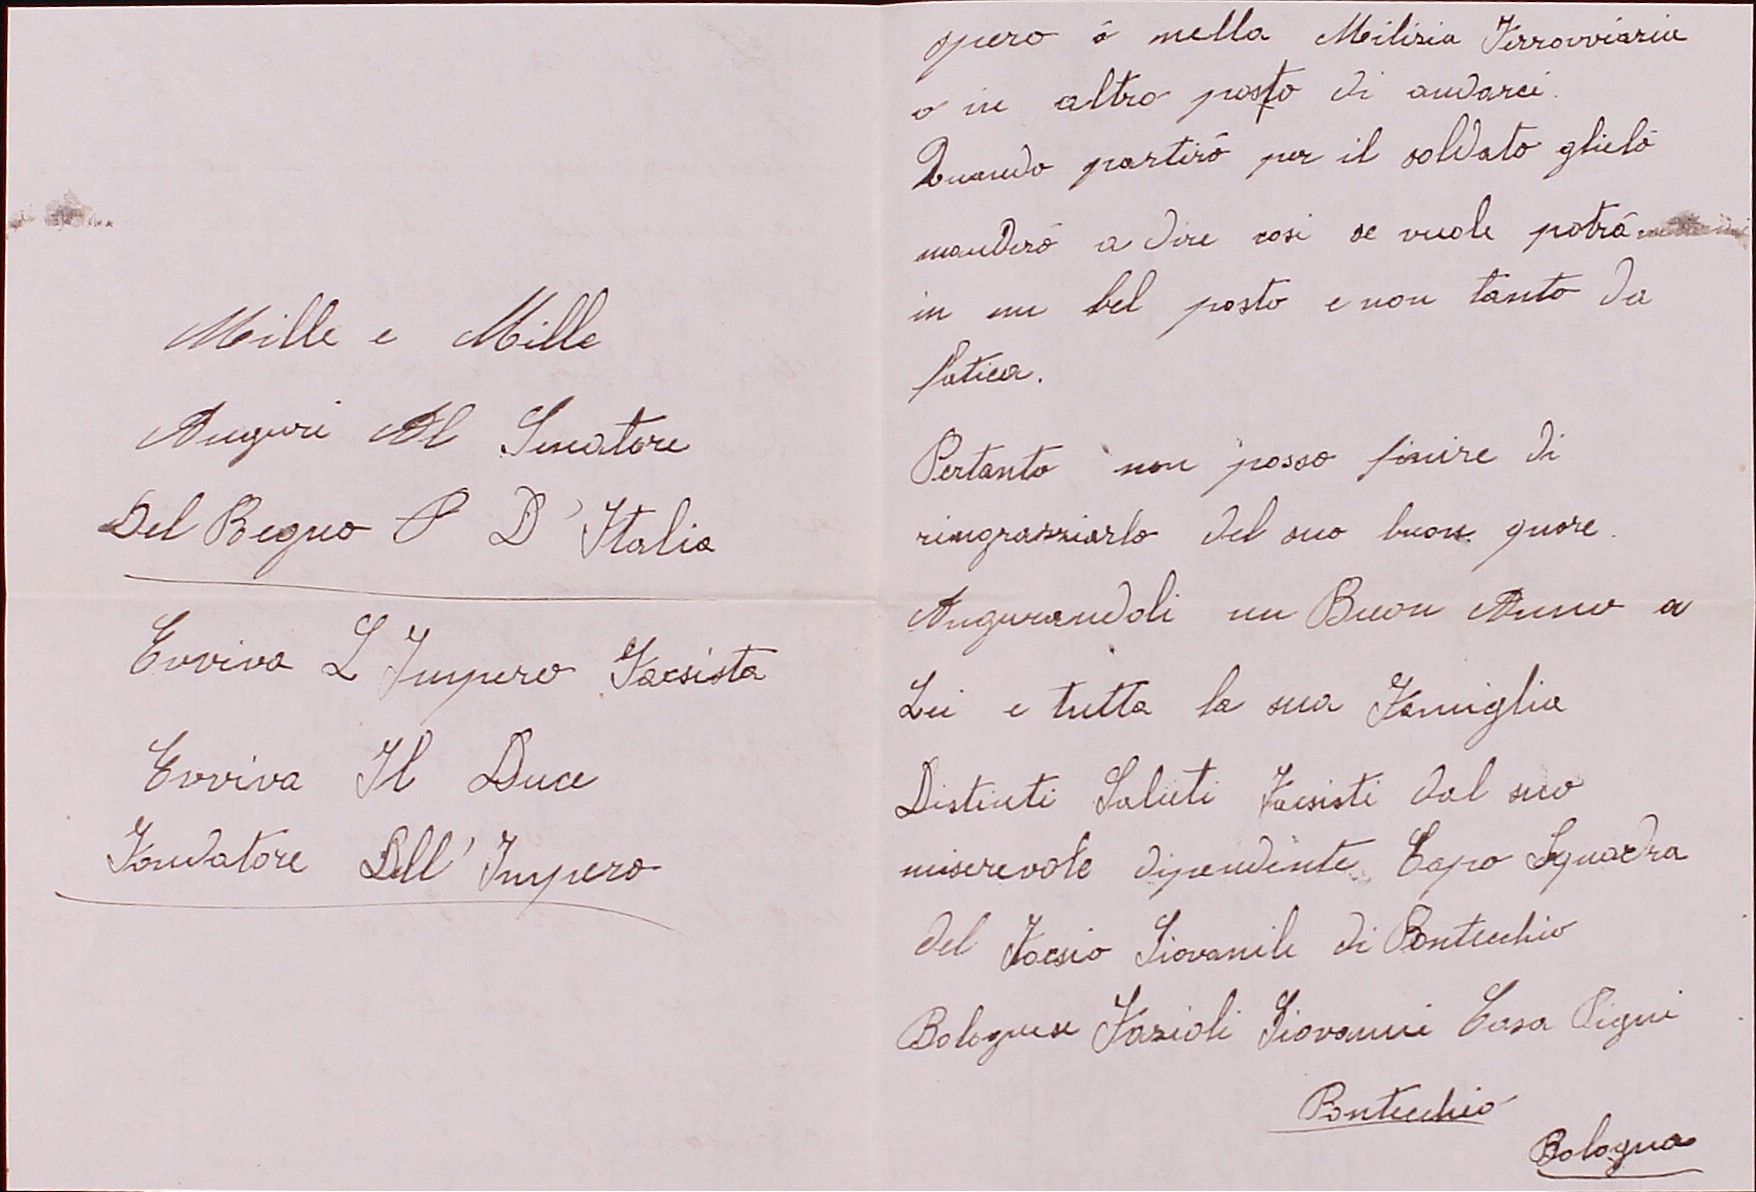 Mille e Mille
Auguri Al Senatore
Del Regno D'Italia
Evviva L Impero Facsista
Evviva Il Duce
Fondatore Dell'Impero
spero ó nella Milizia Ferrovviaria
o in altro posto di andarci.
Quando partiró per il soldato glieló
manderó a dire cosi se vuole potrá
in un bel posto e non tanto da
fatica.
Pertanto non posso finire di
ringrazziarlo del suo buon quore.
Augurandoli un Buon Anno a
Lei e tutta la sua Famiglia
Distinti Saluti Facsisti dal suo
miserevole dipendente Capo Squadra
del Facsio Giovanile di Pontecchio
Bolognese Fazioli Giovanni Casa Pigni
Pontecchio
Bologna